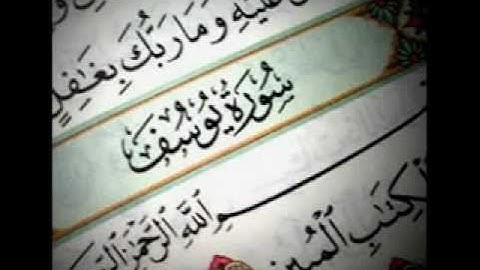 عَلَيْهِ وَمَا رَبُّكَ بِغَٰفِلٍ
سُورَةُ يُوسُفَ
ٱللَّهِ ٱلرَّحْمَٰنِ
ٱلْكِتَٰبِ ٱلْمُبِينِ